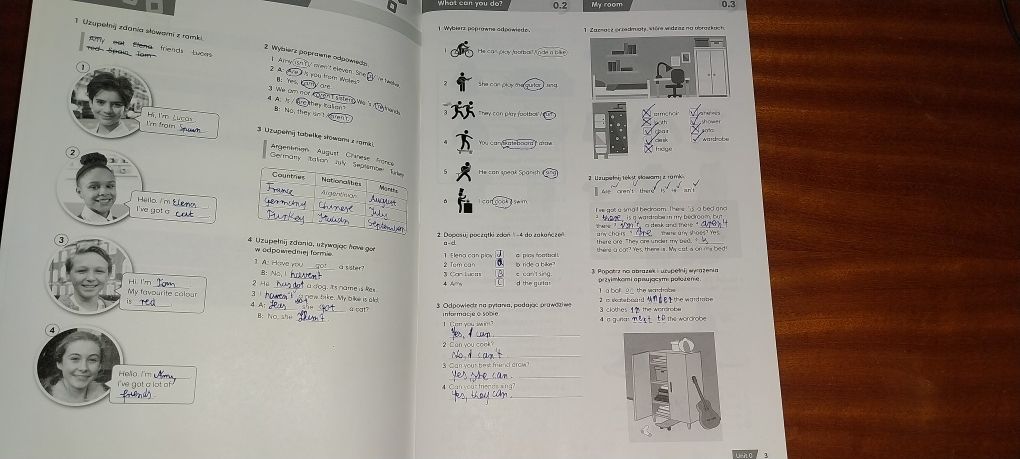 1 Uzupełnij zdania słowami z ramki.
Amy eat Elena friends Lucas
red Spain Tom
1
Hi, I'm Lucas
I'm from Spain
2
Hello. I'm Elena
I've got a cat
3
Hi. I'm Tom
My favourite colour
is red
4
Hello. I'm Amy
I've got a lot of
friends.
2 Wybierz poprawne odpowiedzi.
B: No, they isn't / aren't
3 Uzupełnij tabelkę słowami z ramki.
Argentinian August Chinese France
Germany Italian July September Turkey
Countries Nationalities Months
France Argentinian August
Germany Chinese July
4 Uzupełnij zdania, używając have got
w odpowiedniej formie.
1 A: Have you got a sister?
B: No, I haven't
2 He has got a dog. Its name is Rex.
What can you do? 0.2
1 Wybierz poprawne odpowiedzi.
1 He can play football / ride a bike
2 She can play the guitar / sing
3 They can play football / run
4 You can skateboard / draw
5 He can speak Spanish / sing
6 I can cook / swim
2 Dopasuj początki zdań 1-4 do zakończeń
a-d.
1 Elena can play d a play football.
2 Tom can a b ride a bike?
3 Can Lucas B c can't sing.
4 Amy C d the guitar.
3 Odpowiedz na pytania, podając prawdziwe
informacje o sobie.
1 Can you swim?
Yes, I can.
2 Can you cook?
No, I can't
3 Can your best friend draw?
Yes, she can.
4 Can your friends sing?
Yes, they can.
My room 0.3
1 Zaznacz przedmioty, które widzisz na obrazkach.
armchair
chair
desk
fridge
shelves
shower
sofa
wardrobe
2 Uzupełnij tekst słowami z ramki.
Are aren't there is is isn't
I've got a small bedroom. There is a bed and
there is a wardrobe in my bedroom, but
there isn't a desk and there aren't
any chairs. Are there any shoes? Yes,
there are. They are under my bed. Is
there a cat? Yes, there is. My cat is on my bed!
3 Popatrz na obrazek i uzupełnij wyrażenia
przyimkami opisującymi położenie.
1 a ball on the wardrobe
2 a skateboard under the wardrobe
3 clothes in the wardrobe
4 a guitar next to the wardrobe
Unit 0 3